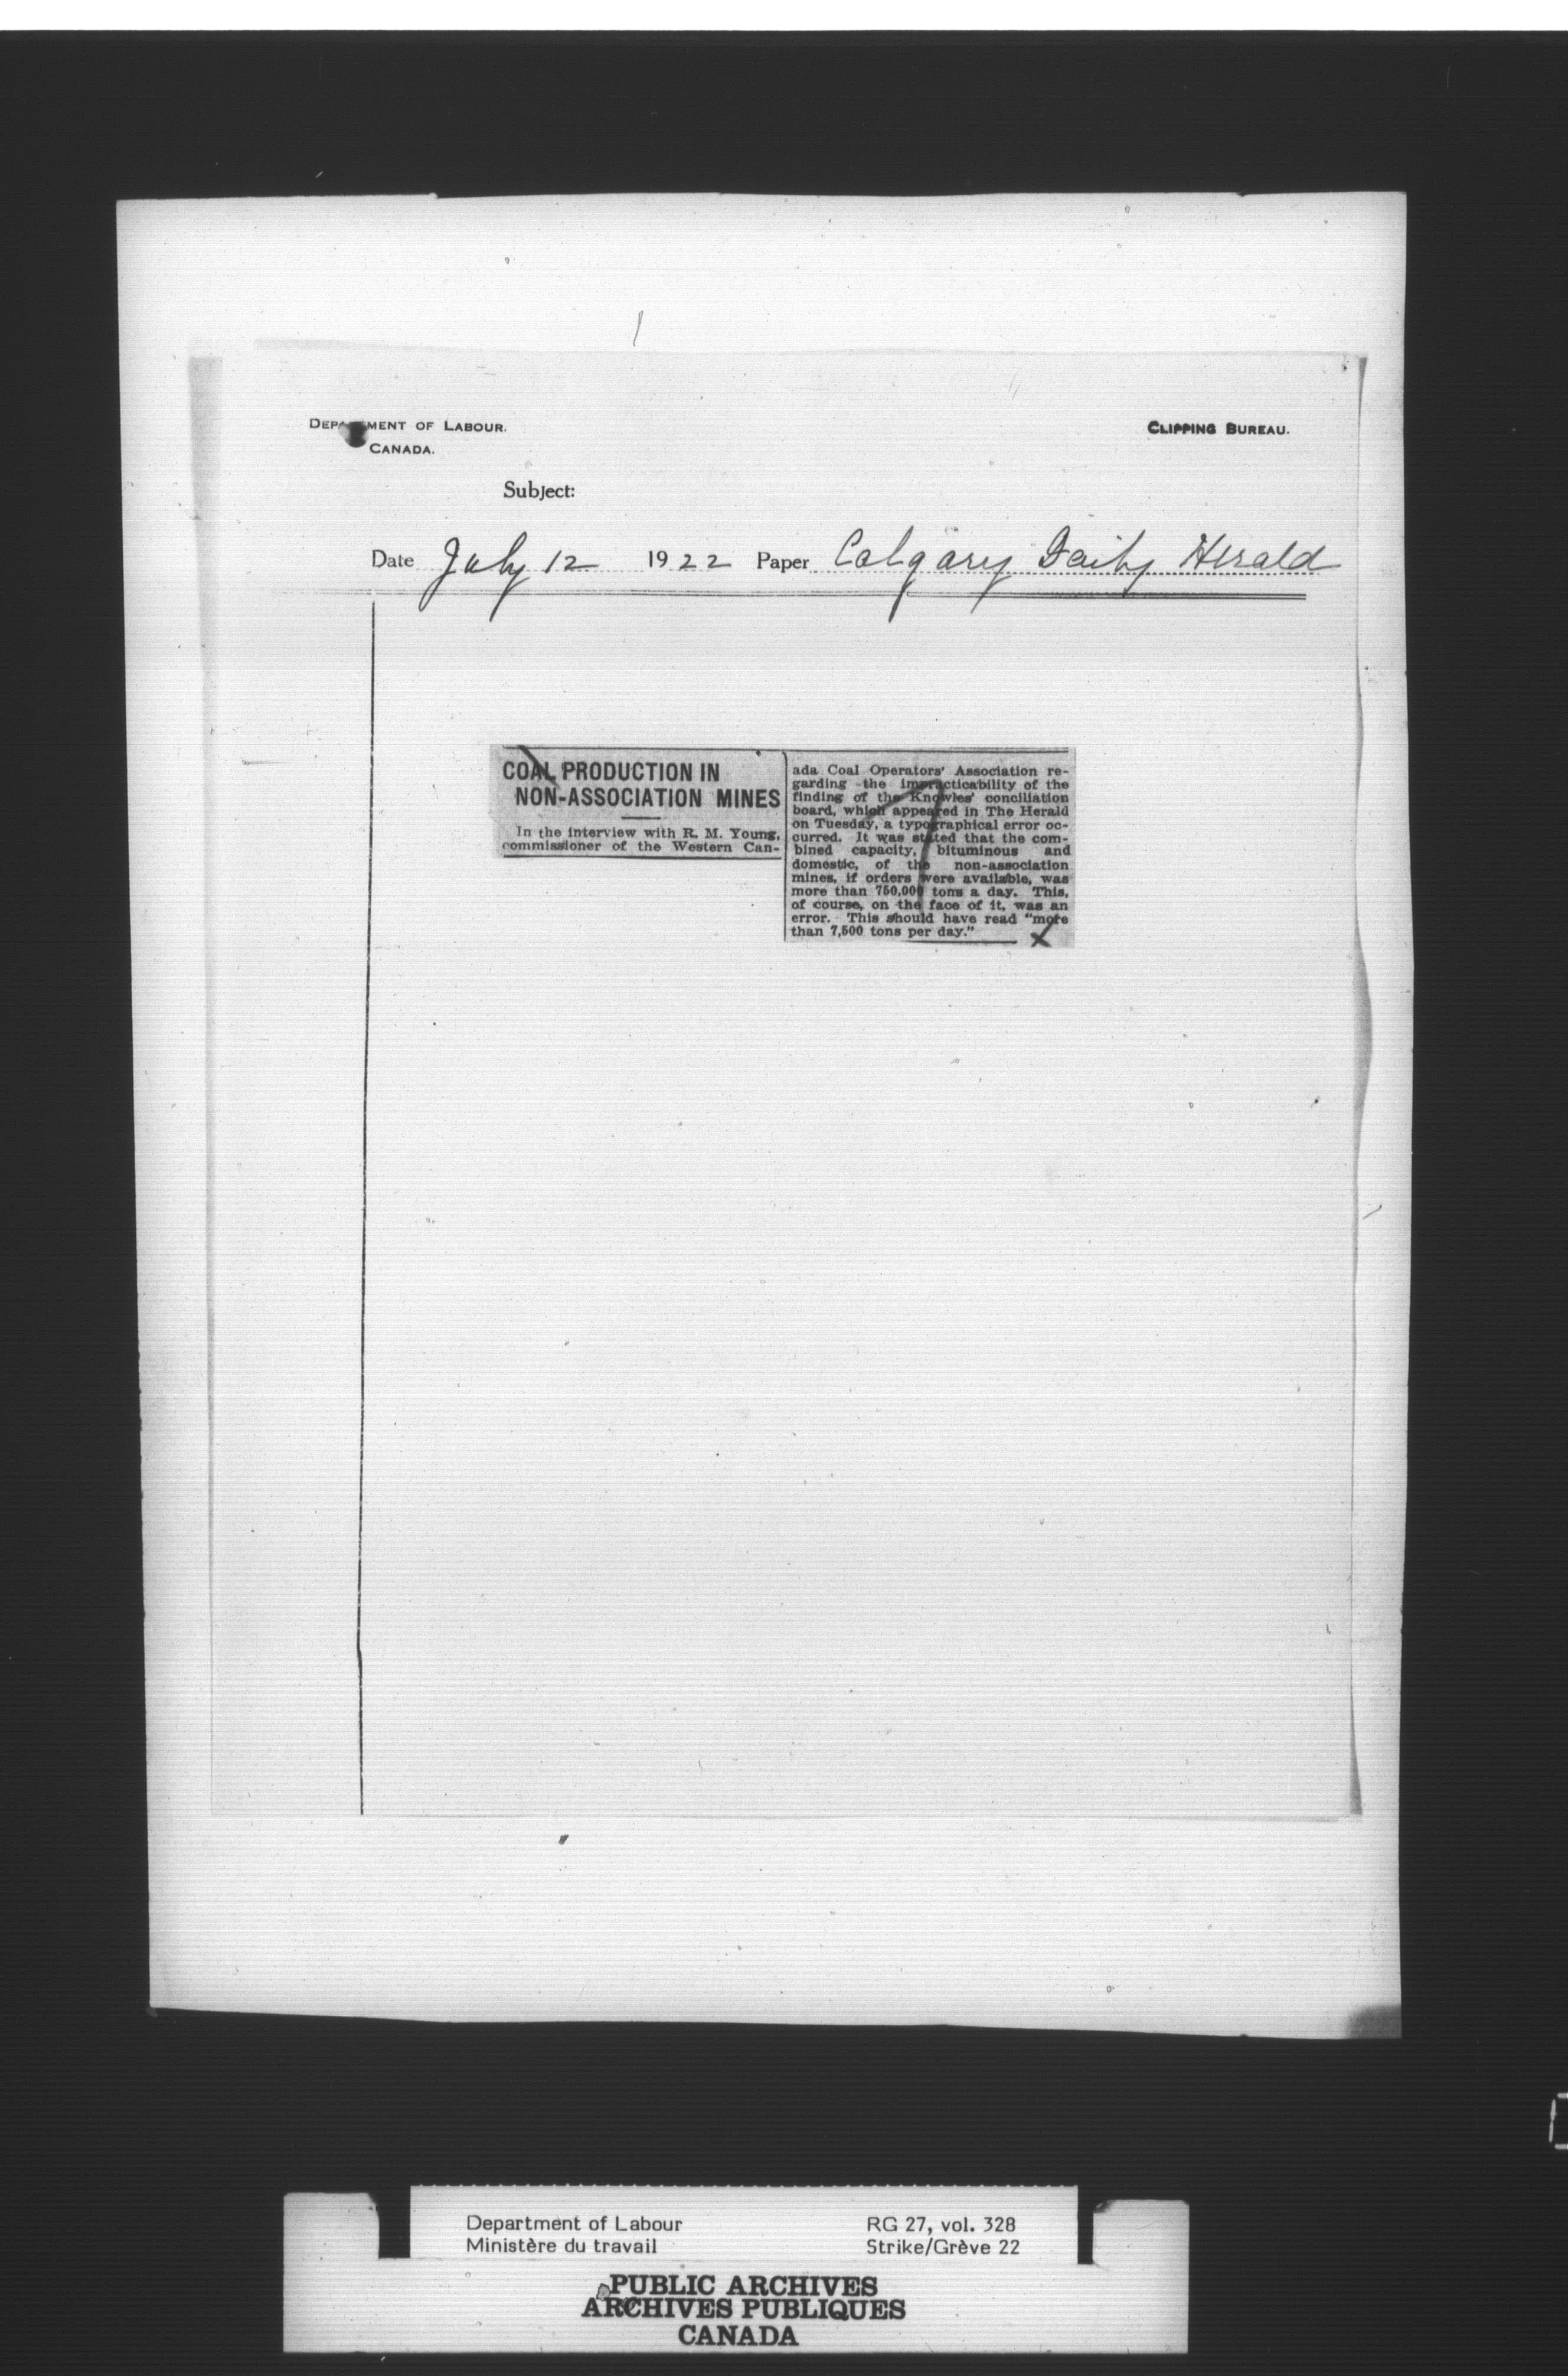 DEPARTMENT OF LABOUR.
CANADA.
CLIPPING BUREAU.
Subject:
Date July 12 1922 Paper Calgary Daily Herald
COAL PRODUCTION IN
NON-ASSOCIATION MINES
In the interview with R. M. Young,
commissioner of the Western Can-
ada Coal Operators' Association re-
garding the impracticability of the
finding of the Knowles' conciliation
board, which appeared in The Herald
on Tuesday, a typographical error oc-
curred. It was stated that the com-
bined capacity, bituminous and
domestic, of the non-association
mines, if orders were available, was
more than 750,000 tons a day. This,
of course, on the face of it, was an
error. This should have read "more
than 7,500 tons per day."
X
Department of Labour
Ministère du travail
RG 27, vol. 328
Strike/Grève 22
PUBLIC ARCHIVES
ARCHIVES PUBLIQUES
CANADA